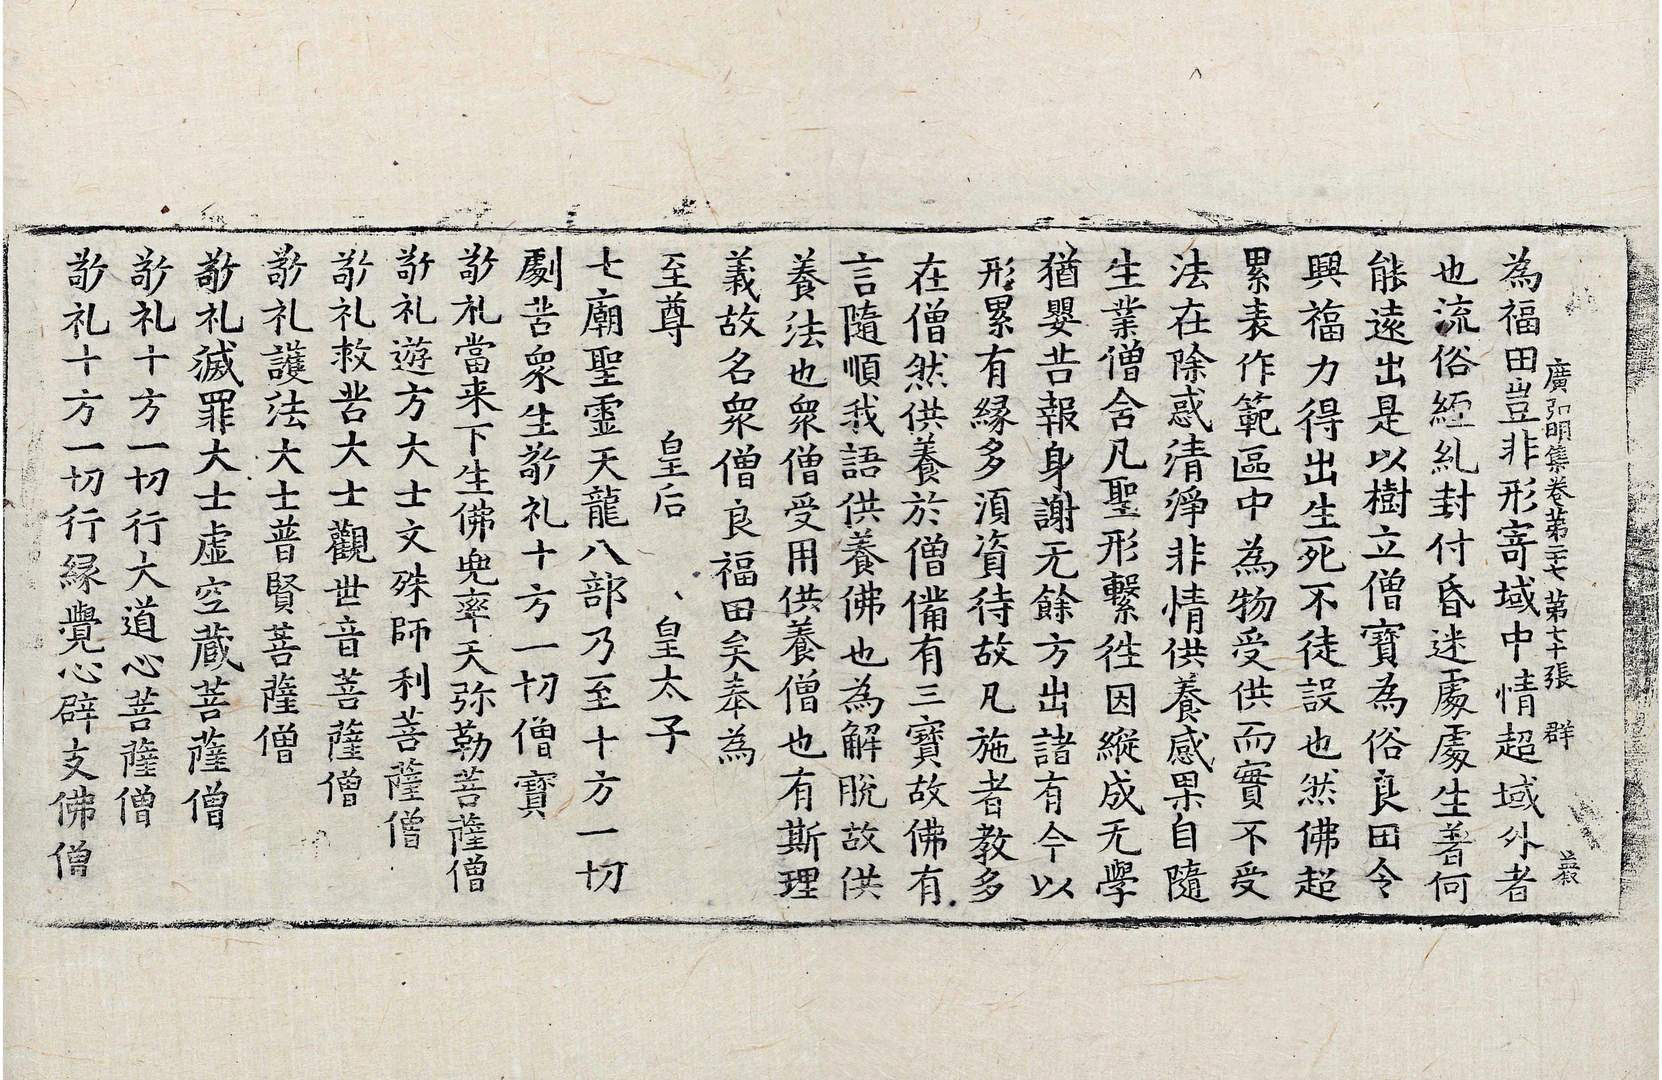 廣弘明集卷第二十七 第七十張 群
為福田豈非形寄域中情超域外者
也流俗經糺封付昏迷處處生著何
能遠出是以樹立僧寶為俗良田令
興福力得出生死不徒設也然佛超
累表作範區中為物受供而實不受
法在除惑清淨非情供養感果自隨
生業僧舍凡聖形繫往因縱成无學
猶嬰苦報身謝无餘方出諸有今以
形累有緣多湏資待故凡施者教多
在僧然供養於僧備有三寶故佛有
言隨順我語供養佛也為解脫故供
養法也眾僧受用供養僧也有斯理
義故名眾僧良福田矣奉為
至尊 皇后 皇太子
七廟聖靈天龍八部乃至十方一切
劇苦眾生敬礼十方一切僧寶
敬礼當来下生佛兜率天弥勒菩薩僧
敬礼遊方大士文殊師利菩薩僧
敬礼救苦大士觀世音菩薩僧
敬礼護法大士普賢菩薩僧
敬礼滅罪大士虛空藏菩薩僧
敬礼十方一切行大道心菩薩僧
敬礼十方一切行緣覺心辟支佛僧